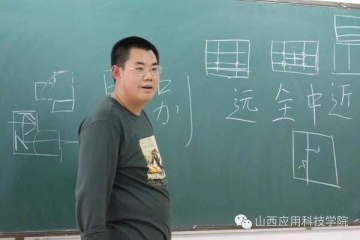 远全中近
山西应用科技学院